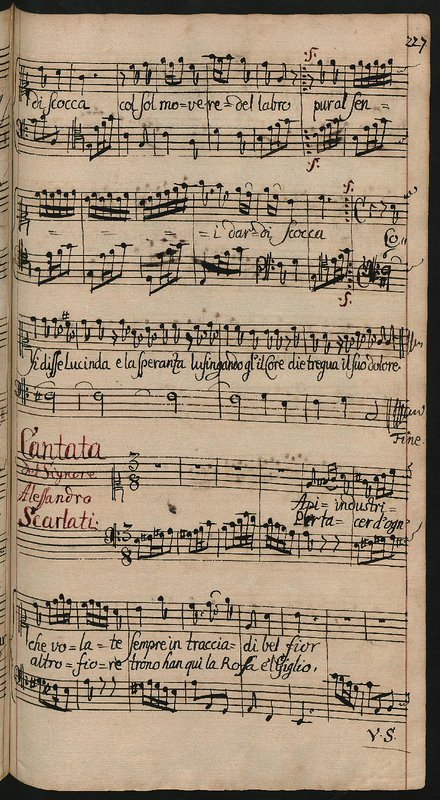 227
.S.
di scocca col sol mo=vere=del labro pur al sen=
.S.
.S.
= = = = i dar=di scocca Co,,
.S.
si disse Lucinda e la speranza lusingando gl'il Core die tregua il suo dolore.
Fine.
Cantata
del Signore
Alessandro
Scarlati.
Api= industri=
Perta= cer d'ogn'
che vo=la=te sempre in traccia= di bel fior
altro=fio=re trono han qui la Rosa e'l Giglio.
V.S.